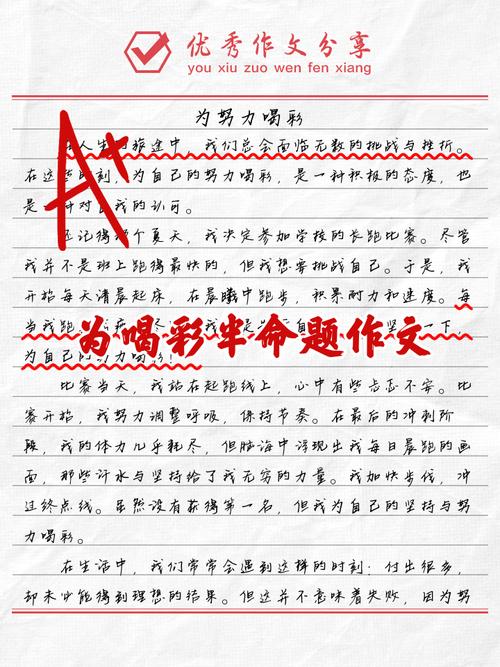 优秀作文分享
you xiu zuo wen fen xiang
A+
为努力喝彩
人生的旅途中，我们总会面临无数的挑战与挫折。
在这些时刻，为自己的努力喝彩，是一种积极的态度，也
是一种对自我的认可。
还记得那个夏天，我决定参加学校的长跑比赛。尽管
我并不是班上跑得最快的，但我想要挑战自己。于是，我
开始每天清晨起床，在晨曦中跑步，积累耐力和速度。每
当我跑 下，
为喝彩半命题作文
为自己的努力喝彩！
比赛当天，我站在起跑线上，心中有些忐忑不安。比
赛开始，我努力调整呼吸，保持节奏。在最后的冲刺阶
段，我的体力几乎耗尽，但脑海中浮现出我每日晨跑的画
面，那些汗水与坚持给了我无穷的力量。我加快步伐，冲
过终点线。虽然没有获得第一名，但我为自己的坚持与努
力喝彩。
在生活中，我们常常会遇到这样的时刻：付出很多，
却未必能得到理想的结果。但这并不意味着失败，因为努